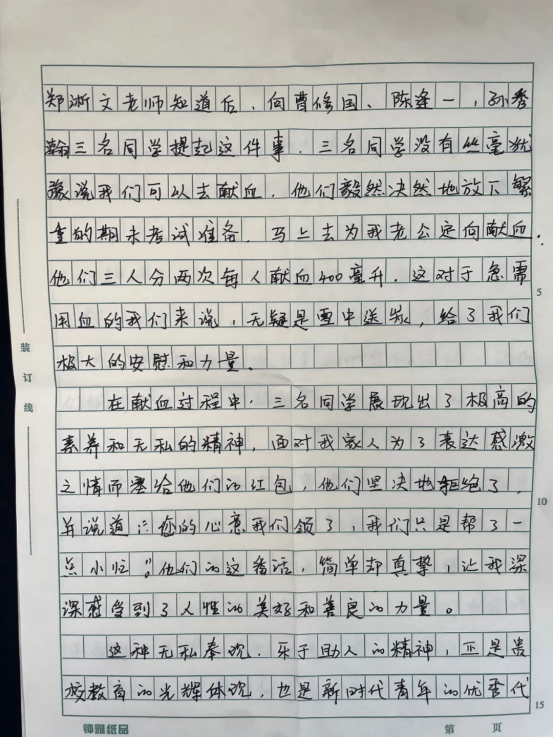 郑淅文老师知道后，向曹修国、陈逢一，孙秀
翰三名同学提起这件事，三名同学没有丝毫犹
豫说我们可以去献血，他们毅然决然地放下繁
重的期末考试准备，马上去为我老公定向献血.
他们三人分两次每人献血400毫升，这对于急需
用血的我们来说，无疑是雪中送炭，给了我们
极大的安慰和力量。
在献血过程中，三名同学展现出了极高的
素养和无私的精神，面对我家人为了表达感激
之情而塞给他们的红包，他们坚决地拒绝了，
并说道：“您的心意我们领了，我们只是帮了一
点小忙”。他们的这番话，简单却真挚，让我深
深感受到了人性的美好和善良的力量。
这种无私奉献，乐于助人的精神，正是贵
校教育的光辉体现，也是新时代青年的优秀代
装订线
5
10
15
铧雅纸品
第 页